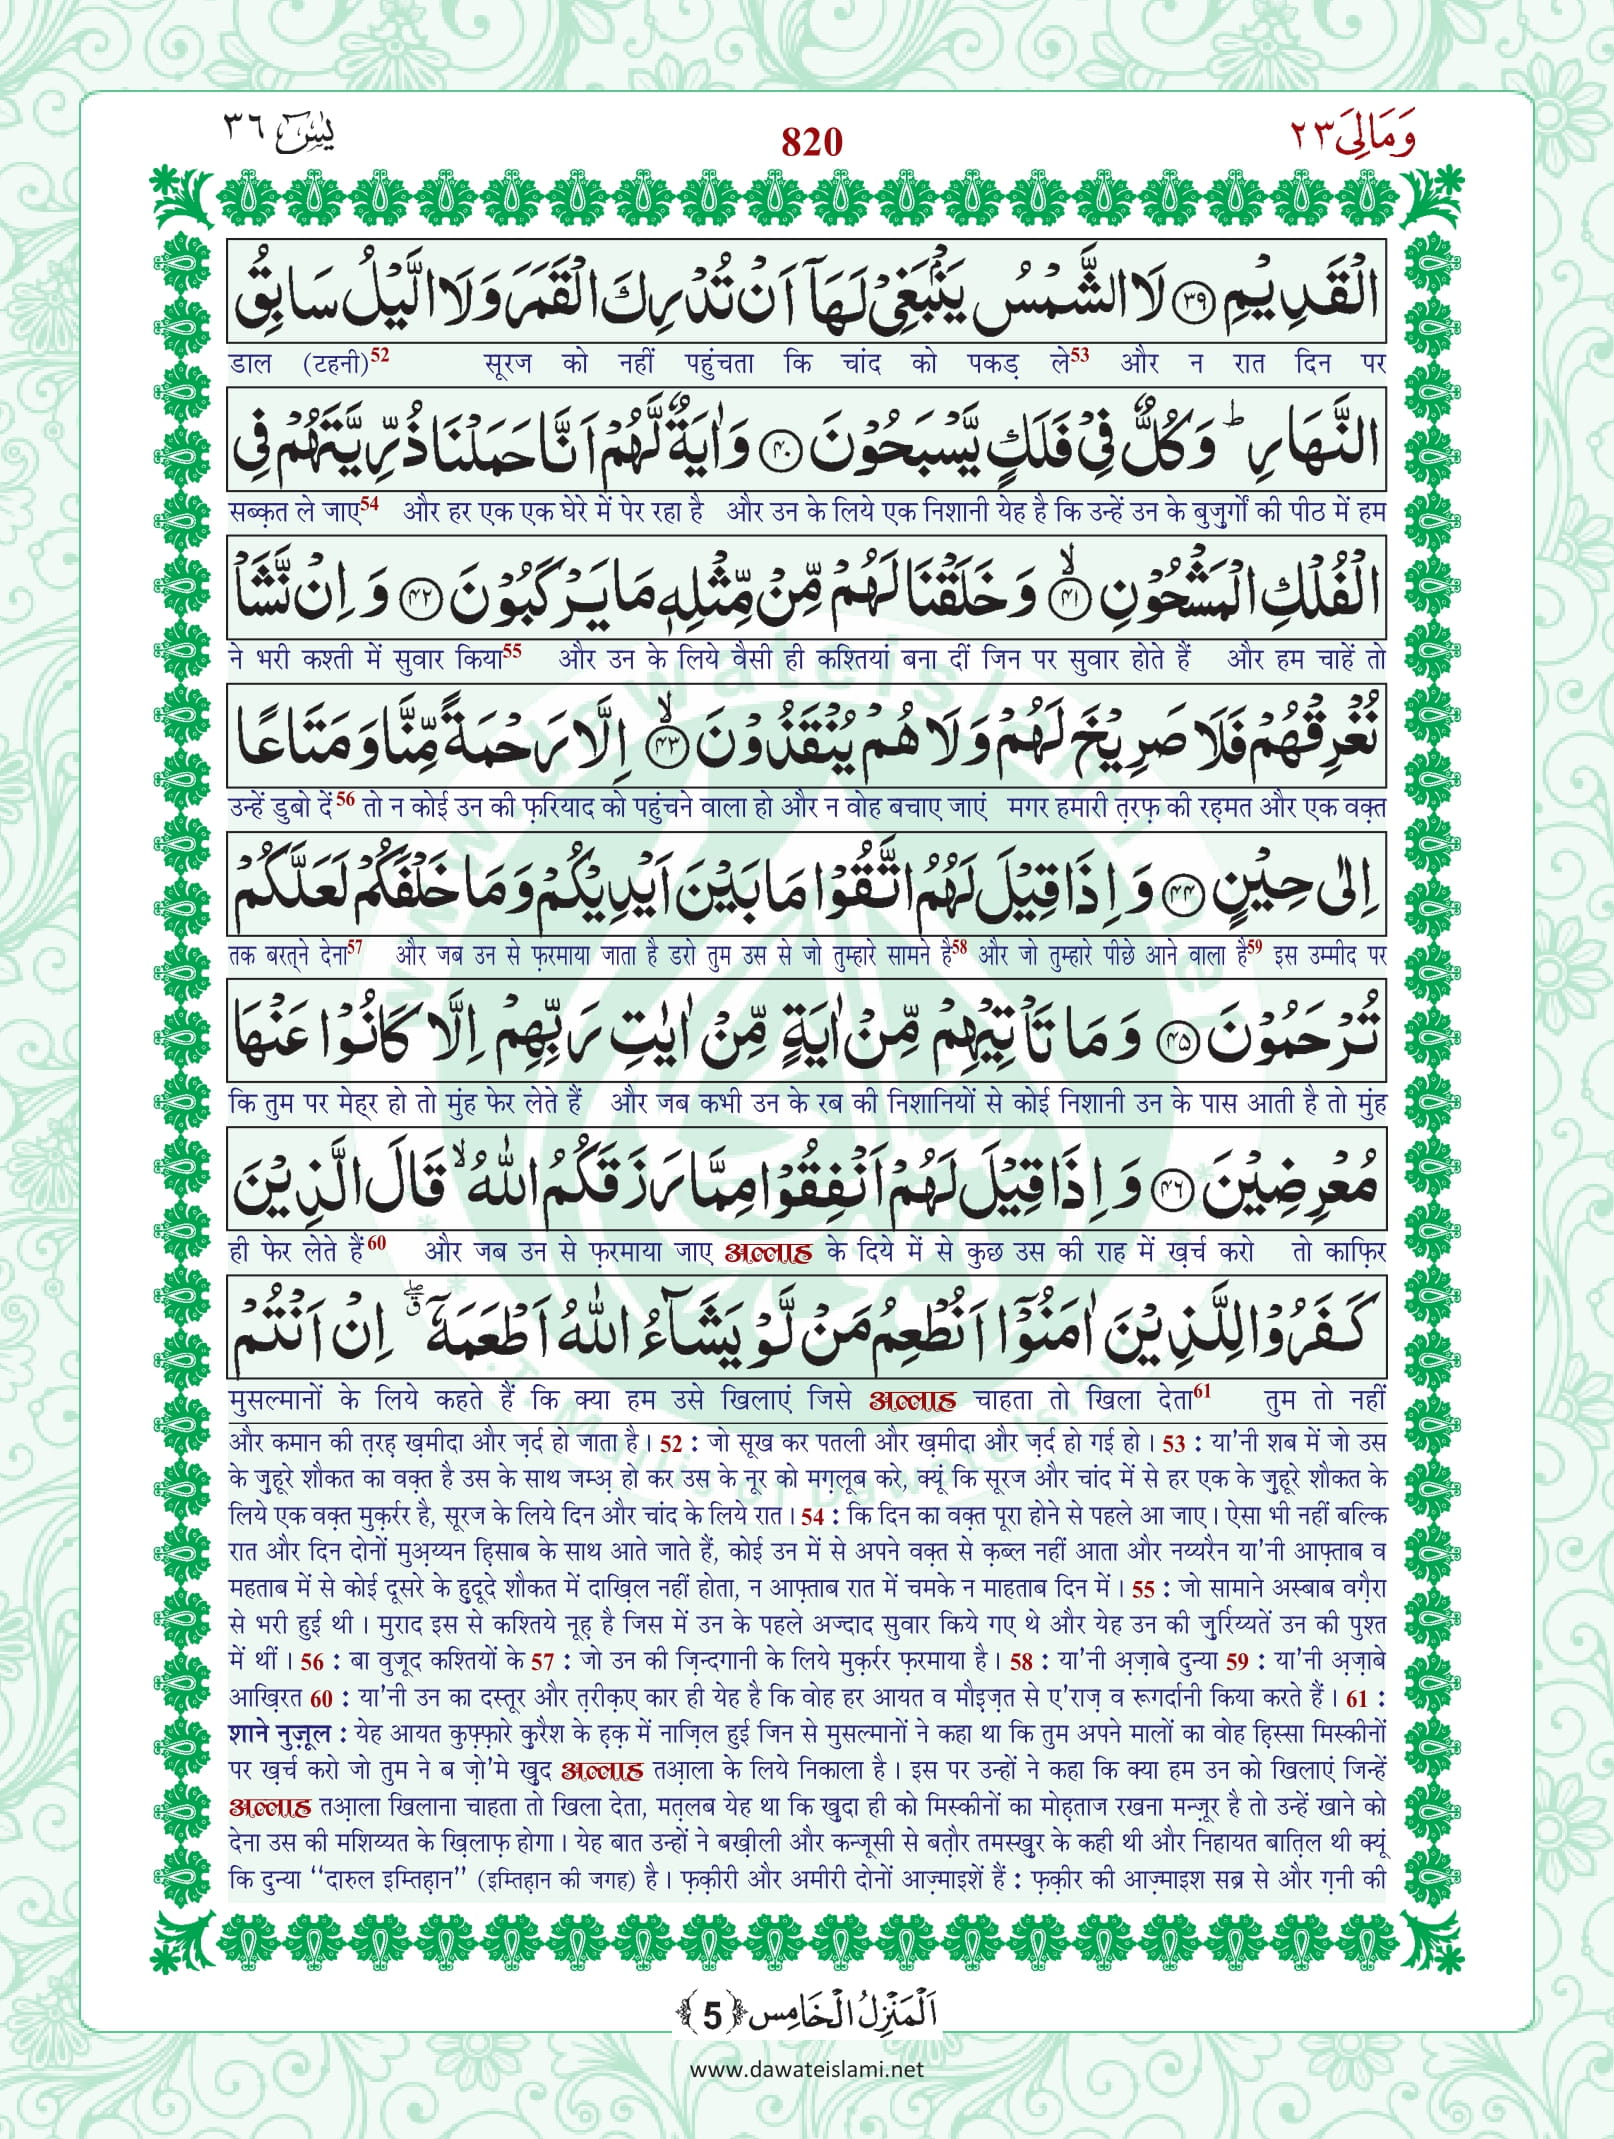 وَمَالِیَ ٢٣
820
یٰسٓ ٣٦
الْقَدِیْمِ ﴿۳۹﴾ لَا الشَّمْسُ یَنْۢبَغِیْ لَهَاۤ اَنْ تُدْرِكَ الْقَمَرَ وَ لَا الَّیْلُ سَابِقُ
डाल (टहनी)52 सूरज को नहीं पहुंचता कि चांद को पकड़ ले53 और न रात दिन पर
النَّهَارِؕ وَ كُلٌّ فِیْ فَلَكٍ یَّسْبَحُوْنَ ﴿۴۰﴾ وَ اٰیَةٌ لَّهُمْ اَنَّا حَمَلْنَا ذُرِّیَّتَهُمْ فِی
सब्क़त ले जाए54 और हर एक एक घेरे में पेर रहा है और उन के लिये एक निशानी येह है कि उन्हें उन के बुज़ुर्गों की पीठ में हम
الْفُلْكِ الْمَشْحُوْنِ ﴿۴۱﴾ۙ وَ خَلَقْنَا لَهُمْ مِّنْ مِّثْلِهٖ مَا یَرْكَبُوْنَ ﴿۴۲﴾ وَ اِنْ نَّشَاْ
ने भरी कश्ती में सुवार किया55 और उन के लिये वैसी ही कश्तियां बना दीं जिन पर सुवार होते हैं और हम चाहें तो
نُغْرِقْهُمْ فَلَا صَرِیْخَ لَهُمْ وَ لَا هُمْ یُنْقَذُوْنَ ﴿۴۳﴾ۙ اِلَّا رَحْمَةً مِّنَّا وَ مَتَاعًا
उन्हें डुबो दें56 तो न कोई उन की फ़रियाद को पहुंचने वाला हो और न वोह बचाए जाएं मगर हमारी त़रफ़ की रह़मत और एक वक़्त
اِلٰى حِیْنٍ ﴿۴۴﴾ وَ اِذَا قِیْلَ لَهُمُ اتَّقُوْا مَا بَیْنَ اَیْدِیْكُمْ وَ مَا خَلْفَكُمْ لَعَلَّكُمْ
तक बरत्ने देना57 और जब उन से फ़रमाया जाता है डरो तुम उस से जो तुम्हारे सामने है58 और जो तुम्हारे पीछे आने वाला है59 इस उम्मीद पर
تُرْحَمُوْنَ ﴿۴۵﴾ وَ مَا تَاْتِیْهِمْ مِّنْ اٰیَةٍ مِّنْ اٰیٰتِ رَبِّهِمْ اِلَّا كَانُوْا عَنْهَا
कि तुम पर मेह्र हो तो मुंह फेर लेते हैं और जब कभी उन के रब की निशानियों से कोई निशानी उन के पास आती है तो मुंह
مُعْرِضِیْنَ ﴿۴۶﴾ وَ اِذَا قِیْلَ لَهُمْ اَنْفِقُوْا مِمَّا رَزَقَكُمُ اللّٰهُۙ قَالَ الَّذِیْنَ
ही फेर लेते हैं60 और जब उन से फ़रमाया जाए अल्लाह के दिये में से कुछ उस की राह में ख़र्च करो तो काफ़िर
كَفَرُوْا لِلَّذِیْنَ اٰمَنُوْۤا اَنُطْعِمُ مَنْ لَّوْ یَشَآءُ اللّٰهُ اَطْعَمَهٗۤ ۖۗ اِنْ اَنْتُمْ
मुसल्मानों के लिये कहते हैं कि क्या हम उसे खिलाएं जिसे अल्लाह चाहता तो खिला देता61 तुम तो नहीं
और कमान की त़रह़ ख़मीदा और ज़र्द हो जाता है। 52 : जो सूख कर पतली और ख़मीदा और ज़र्द हो गई हो। 53 : या'नी शब में जो उस
के ज़ुहूरे शौकत का वक़्त है उस के साथ जम्अ़ हो कर उस के नूर को मग़्लूब करे, क्यूं कि सूरज और चांद में से हर एक के ज़ुहूरे शौकत के
लिये एक वक़्त मुक़र्रर है, सूरज के लिये दिन और चांद के लिये रात। 54 : कि दिन का वक़्त पूरा होने से पहले आ जाए। ऐसा भी नहीं बल्कि
रात और दिन दोनों मुअ़य्यन ह़िसाब के साथ आते जाते हैं, कोई उन में से अपने वक़्त से क़ब्ल नहीं आता और नय्यरैन या'नी आफ़्ताब व
महताब में से कोई दूसरे के हुदूदे शौकत में दाख़िल नहीं होता, न आफ़्ताब रात में चमके न माहताब दिन में। 55 : जो सामाने अस्बाब वग़ैरा
से भरी हुई थी। मुराद इस से कश्तिये नूह़ है जिस में उन के पहले अज्दाद सुवार किये गए थे और येह उन की ज़ुर्रिय्यतें उन की पुश्त
में थीं। 56 : बा वुजूद कश्तियों के 57 : जो उन की ज़िन्दगानी के लिये मुक़र्रर फ़रमाया है। 58 : या'नी अ़ज़ाबे दुन्या 59 : या'नी अ़ज़ाबे
आख़िरत 60 : या'नी उन का दस्तूर और त़रीक़ए कार ही येह है कि वोह हर आयत व मौइ़ज़त से ए'राज़ व रूगर्दानी किया करते हैं। 61 :
शाने नुज़ूल : येह आयत कुफ़्फ़ारे क़ुरैश के ह़क़ में नाज़िल हुई जिन से मुसल्मानों ने कहा था कि तुम अपने मालों का वोह ह़िस्सा मिस्कीनों
पर ख़र्च करो जो तुम ने ब ज़ो'मे ख़ुद अल्लाह तआ़ला के लिये निकाला है। इस पर उन्हों ने कहा कि क्या हम उन को खिलाएं जिन्हें
अल्लाह तआ़ला खिलाना चाहता तो खिला देता, मत़लब येह था कि ख़ुदा ही को मिस्कीनों का मोह़ताज रखना मन्ज़ूर है तो उन्हें खाने को
देना उस की मशिय्यत के ख़िलाफ़ होगा। येह बात उन्हों ने बख़ीली और कन्जूसी से बत़ौर तमस्ख़ुर के कही थी और निहायत बात़िल थी क्यूं
कि दुन्या ‘‘दारुल इम्तिह़ान’’ (इम्तिह़ान की जगह) है। फ़क़ीरी और अमीरी दोनों आज़्माइशें हैं : फ़क़ीर की आज़्माइश सब्र से और ग़नी की
اَلْمَنْزِلُ الْخَامِس ﴿5﴾
www.dawateislami.net